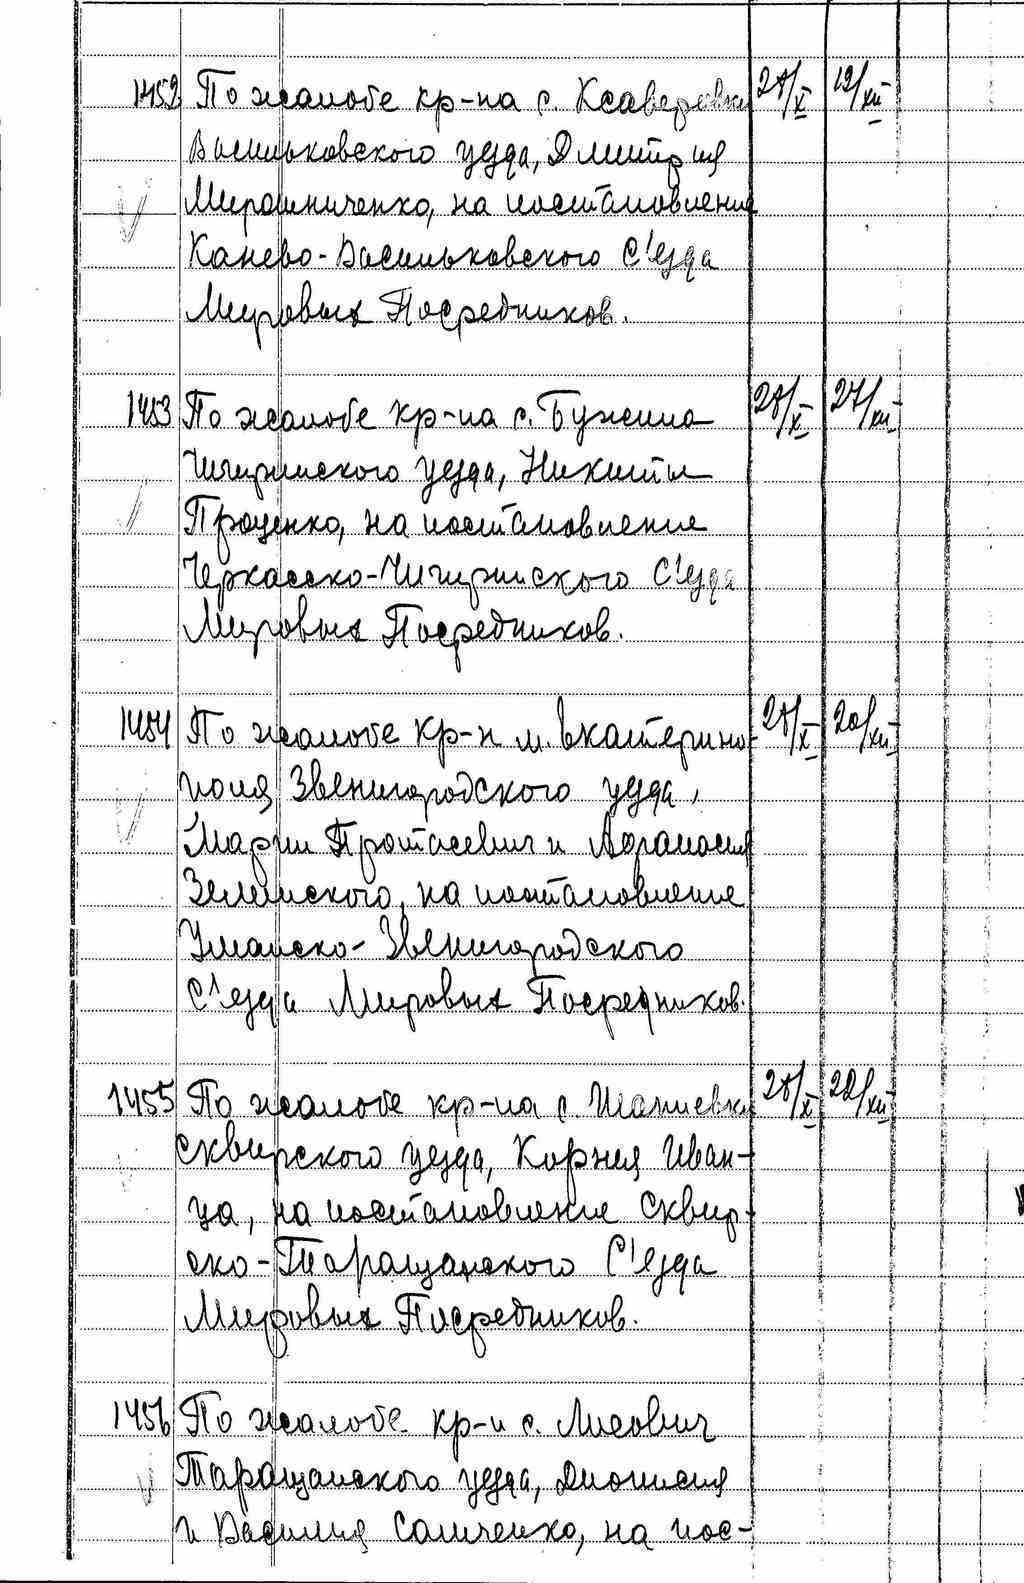 1452 По жалобе кр-на с. Ксаверовки 28/XI 12/XII
Васильковского уезда, Дмитрия
Мирошниченко, на постановление
Канево-Васильковского С'езда
Мировых Посредников.
1453 По жалобе кр-на с. Бужина 28/XI 27/XII
Чигиринского уезда, Никиты
Проценко, на постановление
Черкасско-Чигиринского С'езда
Мировых Посредников.
1454 По жалобе кр-н м. Екатерино- 28/XI 20/XII
поля Звенигородского уезда,
Марии Протасевич и Афанасия
Зелинского, на постановление
Уманско-Звенигородского
С'езда Мировых Посредников.
1455 По жалобе кр-на с. Шапиевки 28/XI 22/XII
Сквирского уезда, Корнея Иван-
ца, на постановление Сквир-
ско-Таращанского С'езда
Мировых Посредников.
1456 По жалобе кр-н с. Лисович
Таращанского уезда, Дионисия
и Василия Сальченко, на пос-